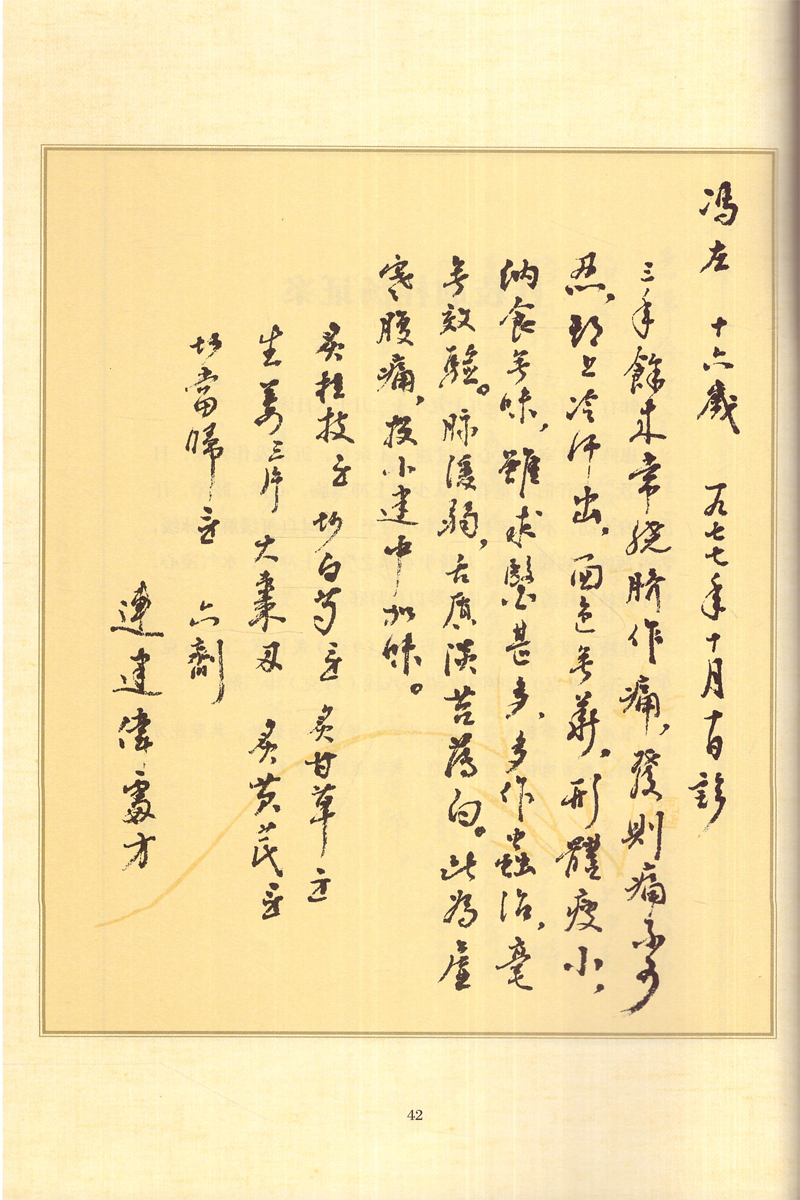 冯左 十六歲 一九七七年十月十日診
三年餘来常繞臍作痛，發則痛不可
忍，頭上冷汗出，面色無華，形體瘦小，
納食無味，雖求醫甚多，多作蟲治，毫
無效驗。脉缓弱，舌质淡苔薄白。此為虛
寒腹痛，投小建中加味。
炙桂枝 炒白芍 炙甘草
生姜三片 大棗 炙黄芪
炒當歸 六劑
連建偉處方
42